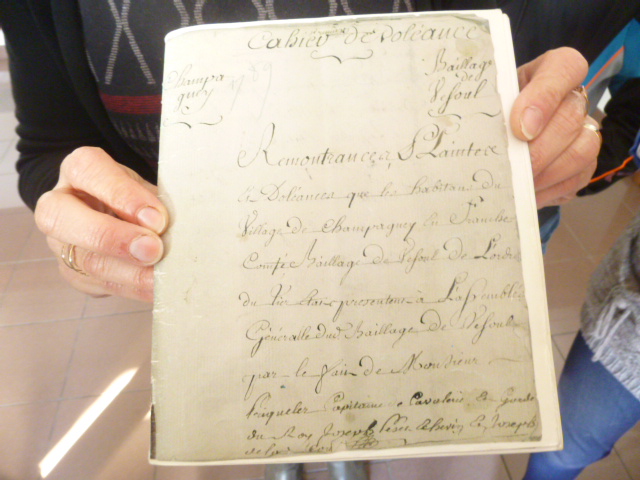 Cahier de Doléance
Champa
gney 1789
Baillage
de
Vesoul
Remontrances, Plaintes
et Doléances que les habitans du
Village de Champagney en Franche
Comté Baillage de Vesoul de L'ordre
du Tier Etat presentent à L'assemblée
Généralle du Baillage de Vesoul
par le de Monsieur
Priqueler Capitaine Cavalerie Garde
du Roy Joseph Joseph
de la